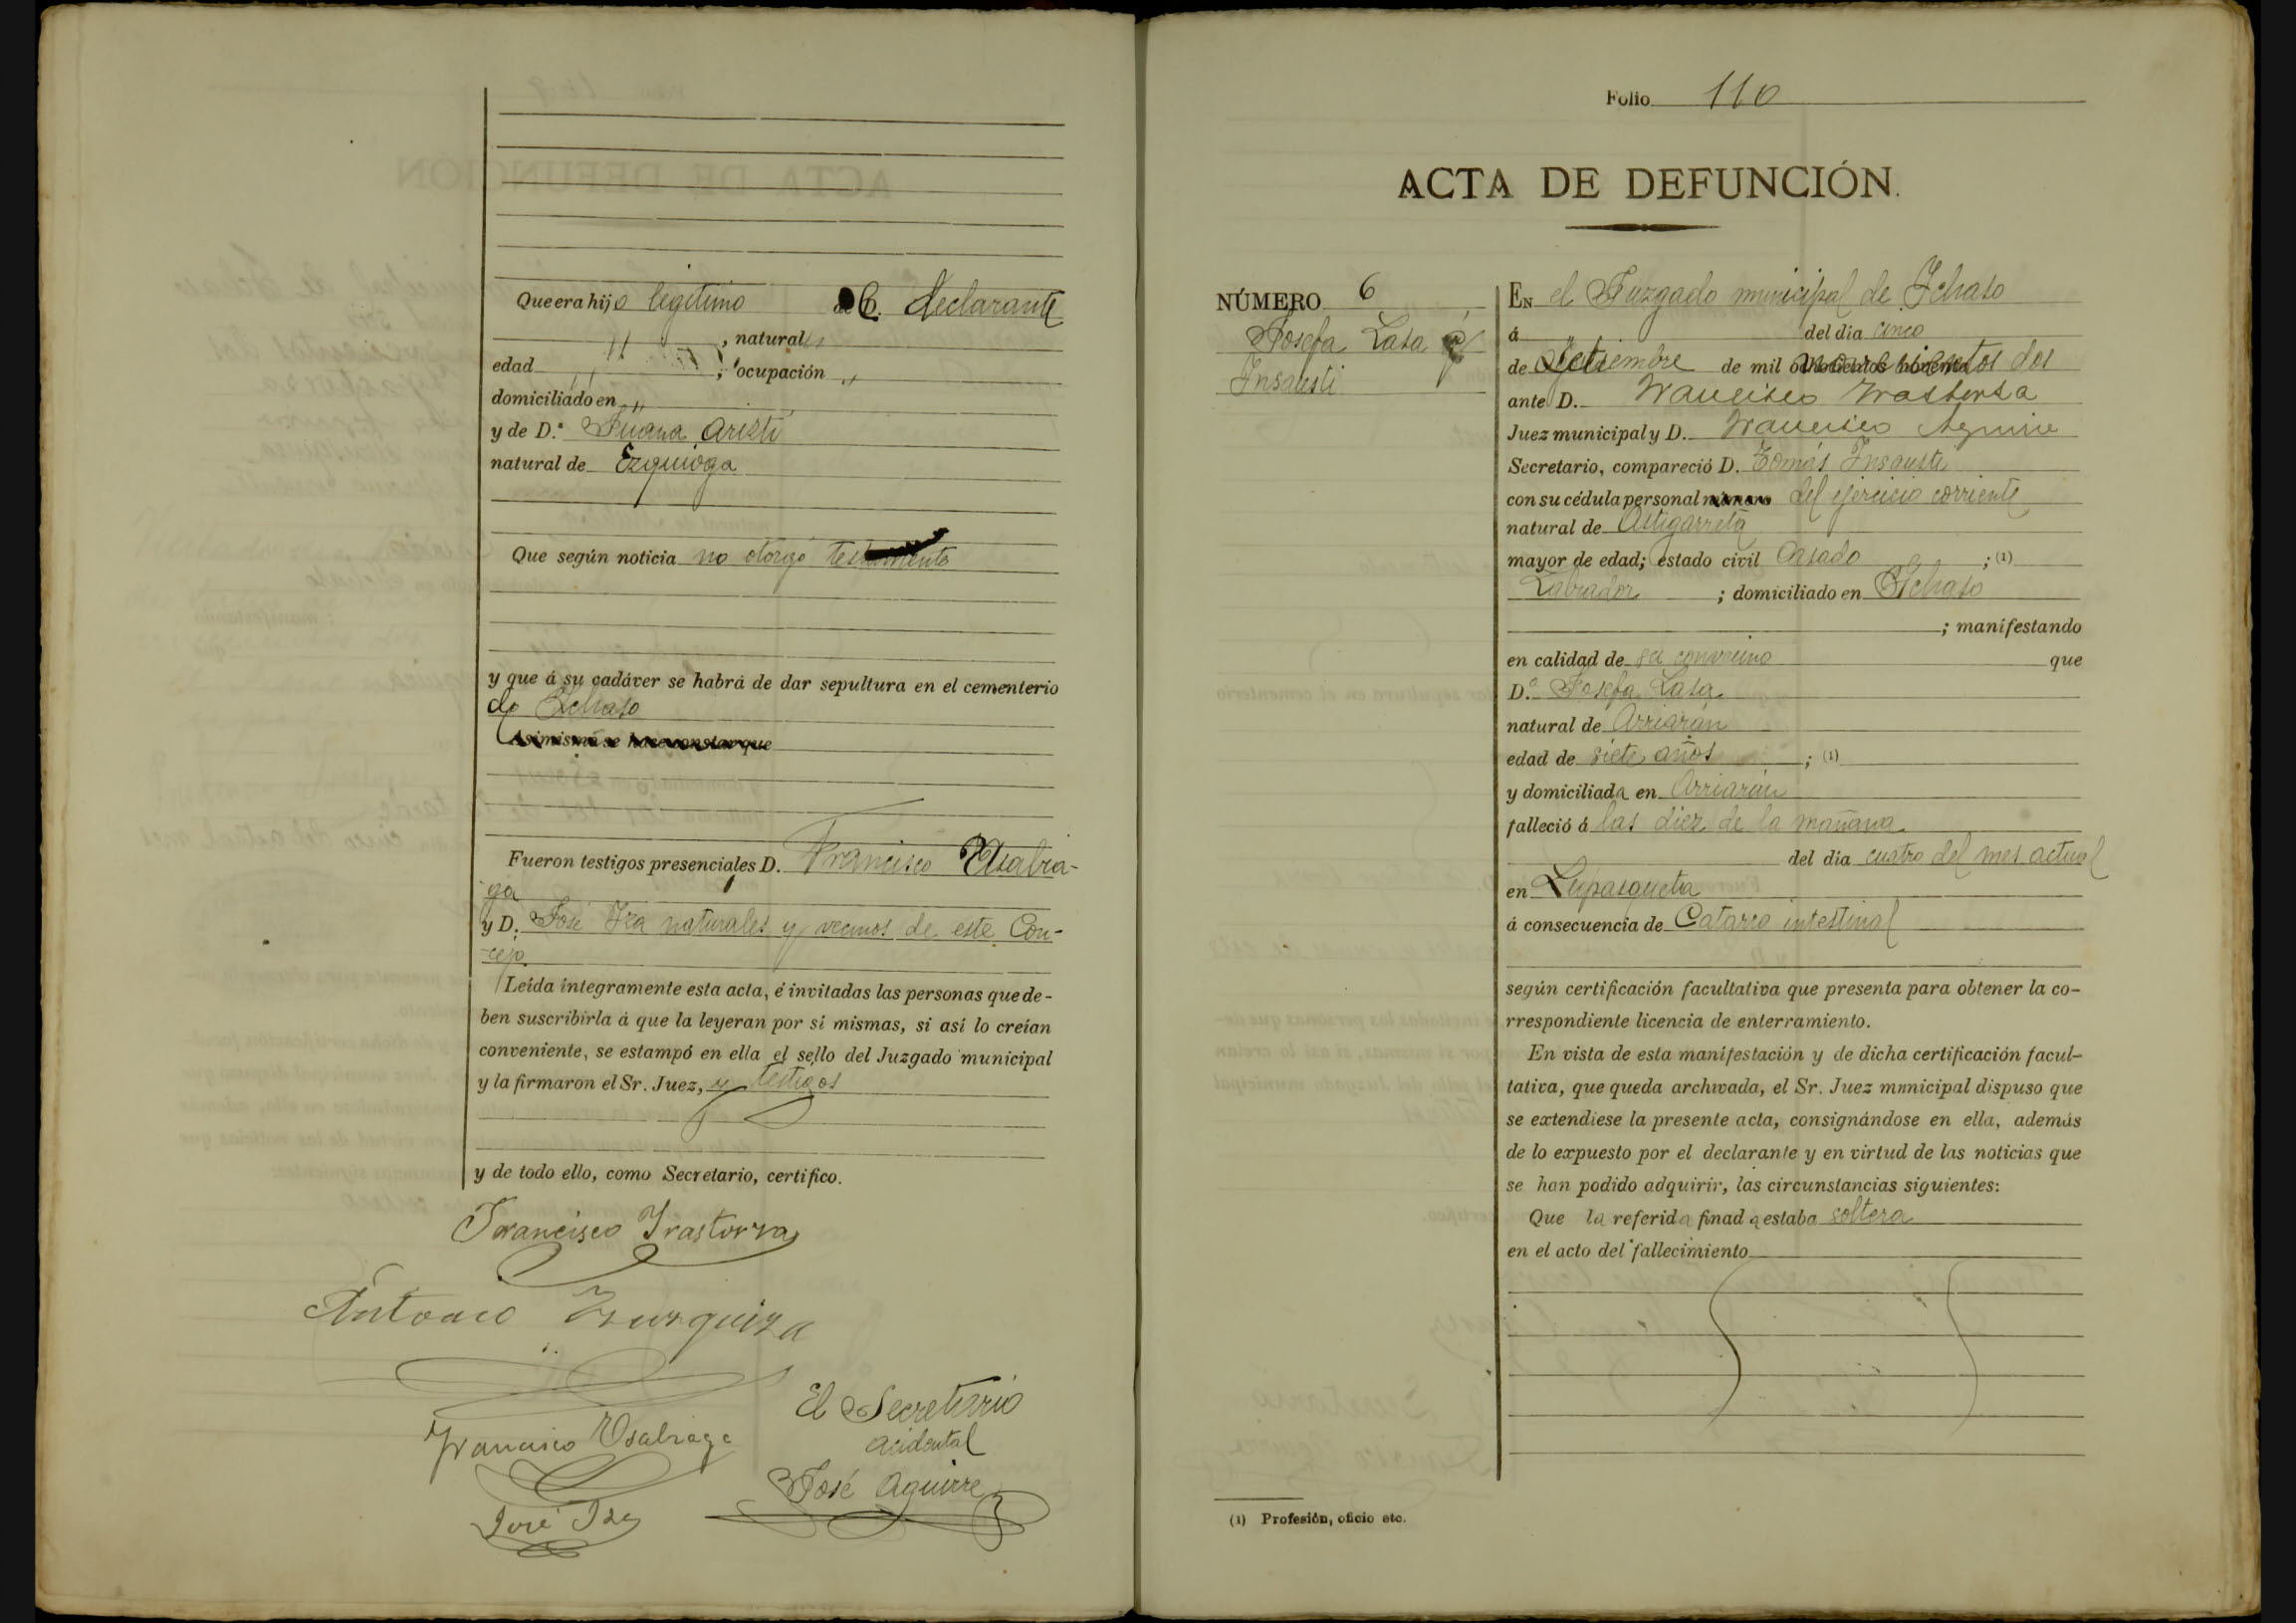 Que era hijo legítimo del declarante
" , natural "
edad " ; ocupación "
domiciliado en "
y de D.ª Juana Aristi
natural de Ezquioga
Que según noticia no otorgó testamento
y que á su cadáver se habrá de dar sepultura en el cementerio
de Ichaso
Asimismo se hace constar que
Fueron testigos presenciales D. Francisco Usabia-
ga
y D. José Iza naturales y vecinos de este Con-
cejo
Leída íntegramente esta acta, é invitadas las personas que de-
ben suscribirla á que la leyeran por sí mismas, si así lo creían
conveniente, se estampó en ella el sello del Juzgado municipal
y la firmaron el Sr. Juez, y testigos
y de todo ello, como Secretario, certifico.
Francisco Irastorza
Antonio
Francisco Usabiaga
José Iza
El Secretario
acidental
José Aguirre
Folio 110
ACTA DE DEFUNCIÓN.
NÚMERO 6
Josefa Lasa é
Insausti
EN el Juzgado municipal de Ichaso
á " del dia cinco
de Setiembre de mil novecientos dos
ante D. Francisco Irastorza
Juez municipal y D. Francisco Aguirre
Secretario, compareció D. Tomás Insausti
con su cédula personal número del ejercicio corriente
natural de Astigarreta
mayor de edad; estado civil Casado ; (1)
Labrador ; domiciliado en Ichaso
; manifestando
en calidad de su convecino que
D.ª Josefa Lasa
natural de Arriarán
edad de siete años ; (1)
y domiciliada en Arriarán
falleció á las diez de la mañana
del dia cuatro del mes actual
en Lupasqueta
á consecuencia de Catarro intestinal
según certificación facultativa que presenta para obtener la co-
rrespondiente licencia de enterramiento.
En vista de esta manifestación y de dicha certificación facul-
tativa, que queda archivada, el Sr. Juez municipal dispuso que
se extendiese la presente acta, consignándose en ella, además
de lo expuesto por el declarante y en virtud de las noticias que
se han podido adquirir, las circunstancias siguientes:
Que la referida finada estaba soltera
en el acto del fallecimiento
(1) Profesión, oficio etc.